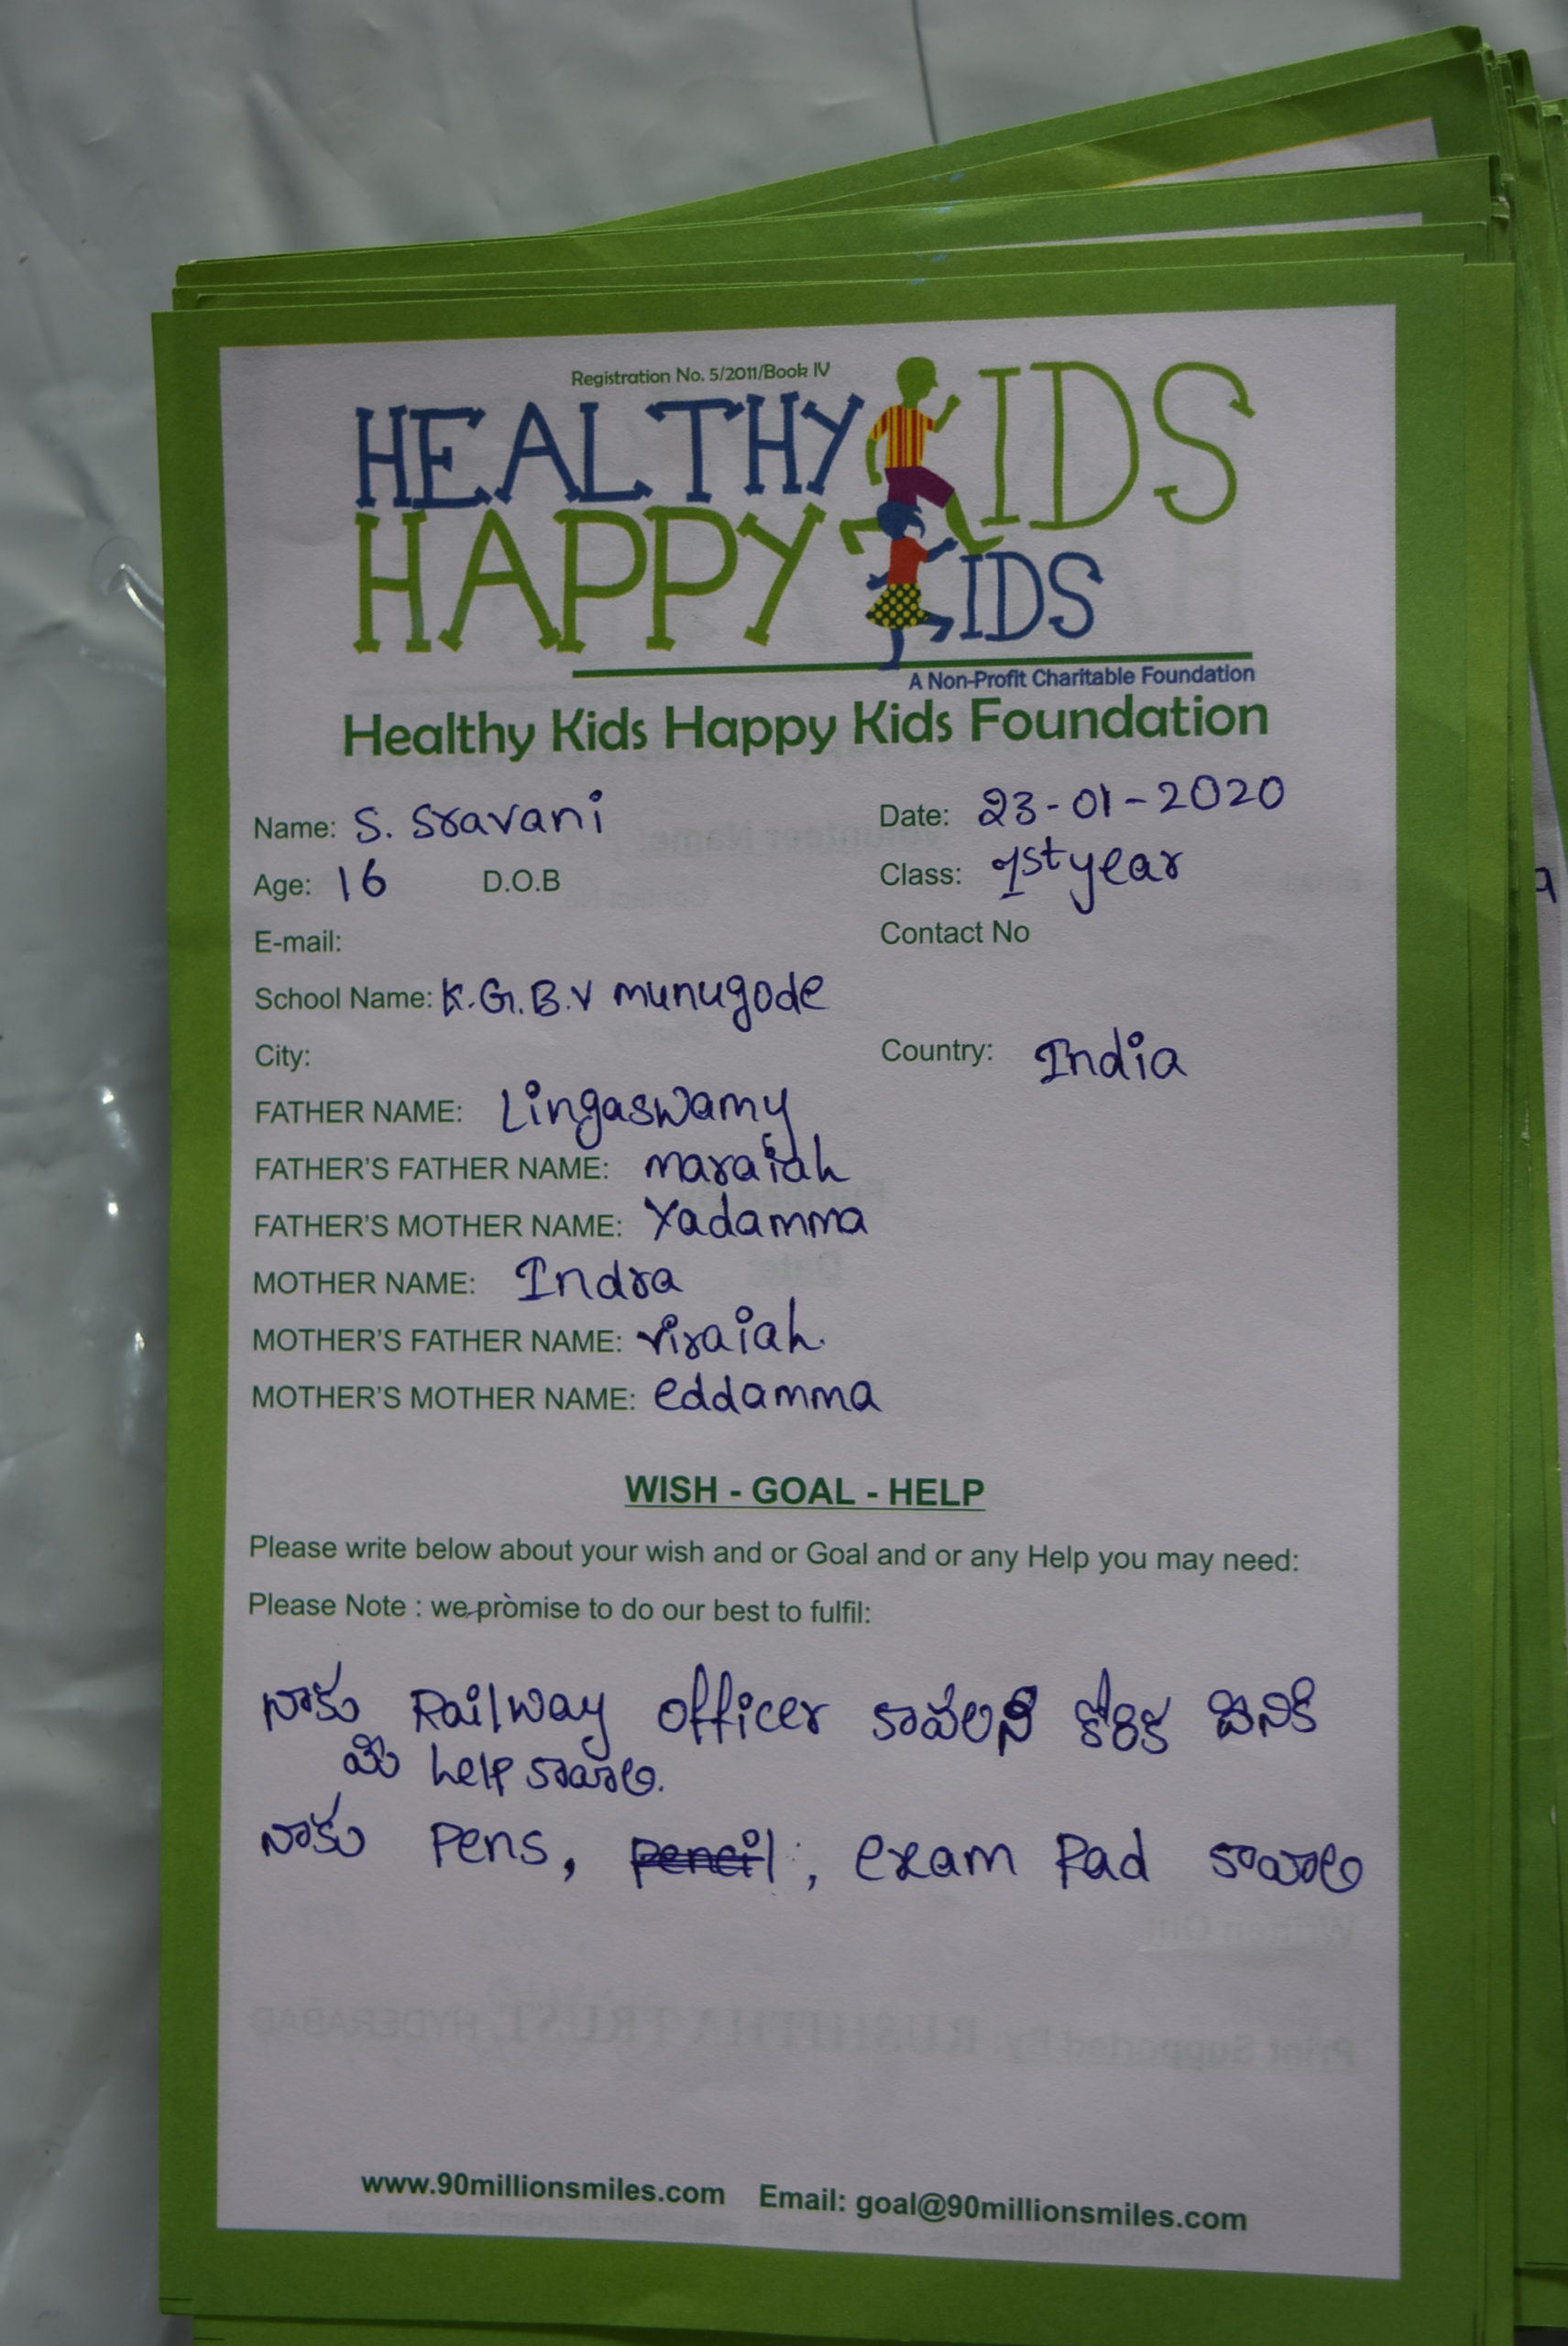 Registration No. 5/2011/Book IV
HEALTHY KIDS
HAPPY KIDS
A Non-Profit Charitable Foundation
Healthy Kids Happy Kids Foundation
Name: S. Sravani Date: 23-01-2020
Age: 16 D.O.B Class: 1st year
E-mail: Contact No
School Name: K.G.B.V munugode
City: Country: India
FATHER NAME: Lingaswamy
FATHER'S FATHER NAME: maraiah
FATHER'S MOTHER NAME: Yadamma
MOTHER NAME: Indra
MOTHER'S FATHER NAME: viraiah.
MOTHER'S MOTHER NAME: eddamma
WISH - GOAL - HELP
Please write below about your wish and or Goal and or any Help you may need:
Please Note : we promise to do our best to fulfil:
నాకు Railway officer కావలని కోరిక దినికి
మి help కావాలి.
నాకు pens, pencil, exam Pad కావాలి
www.90millionsmiles.com Email: goal@90millionsmiles.com